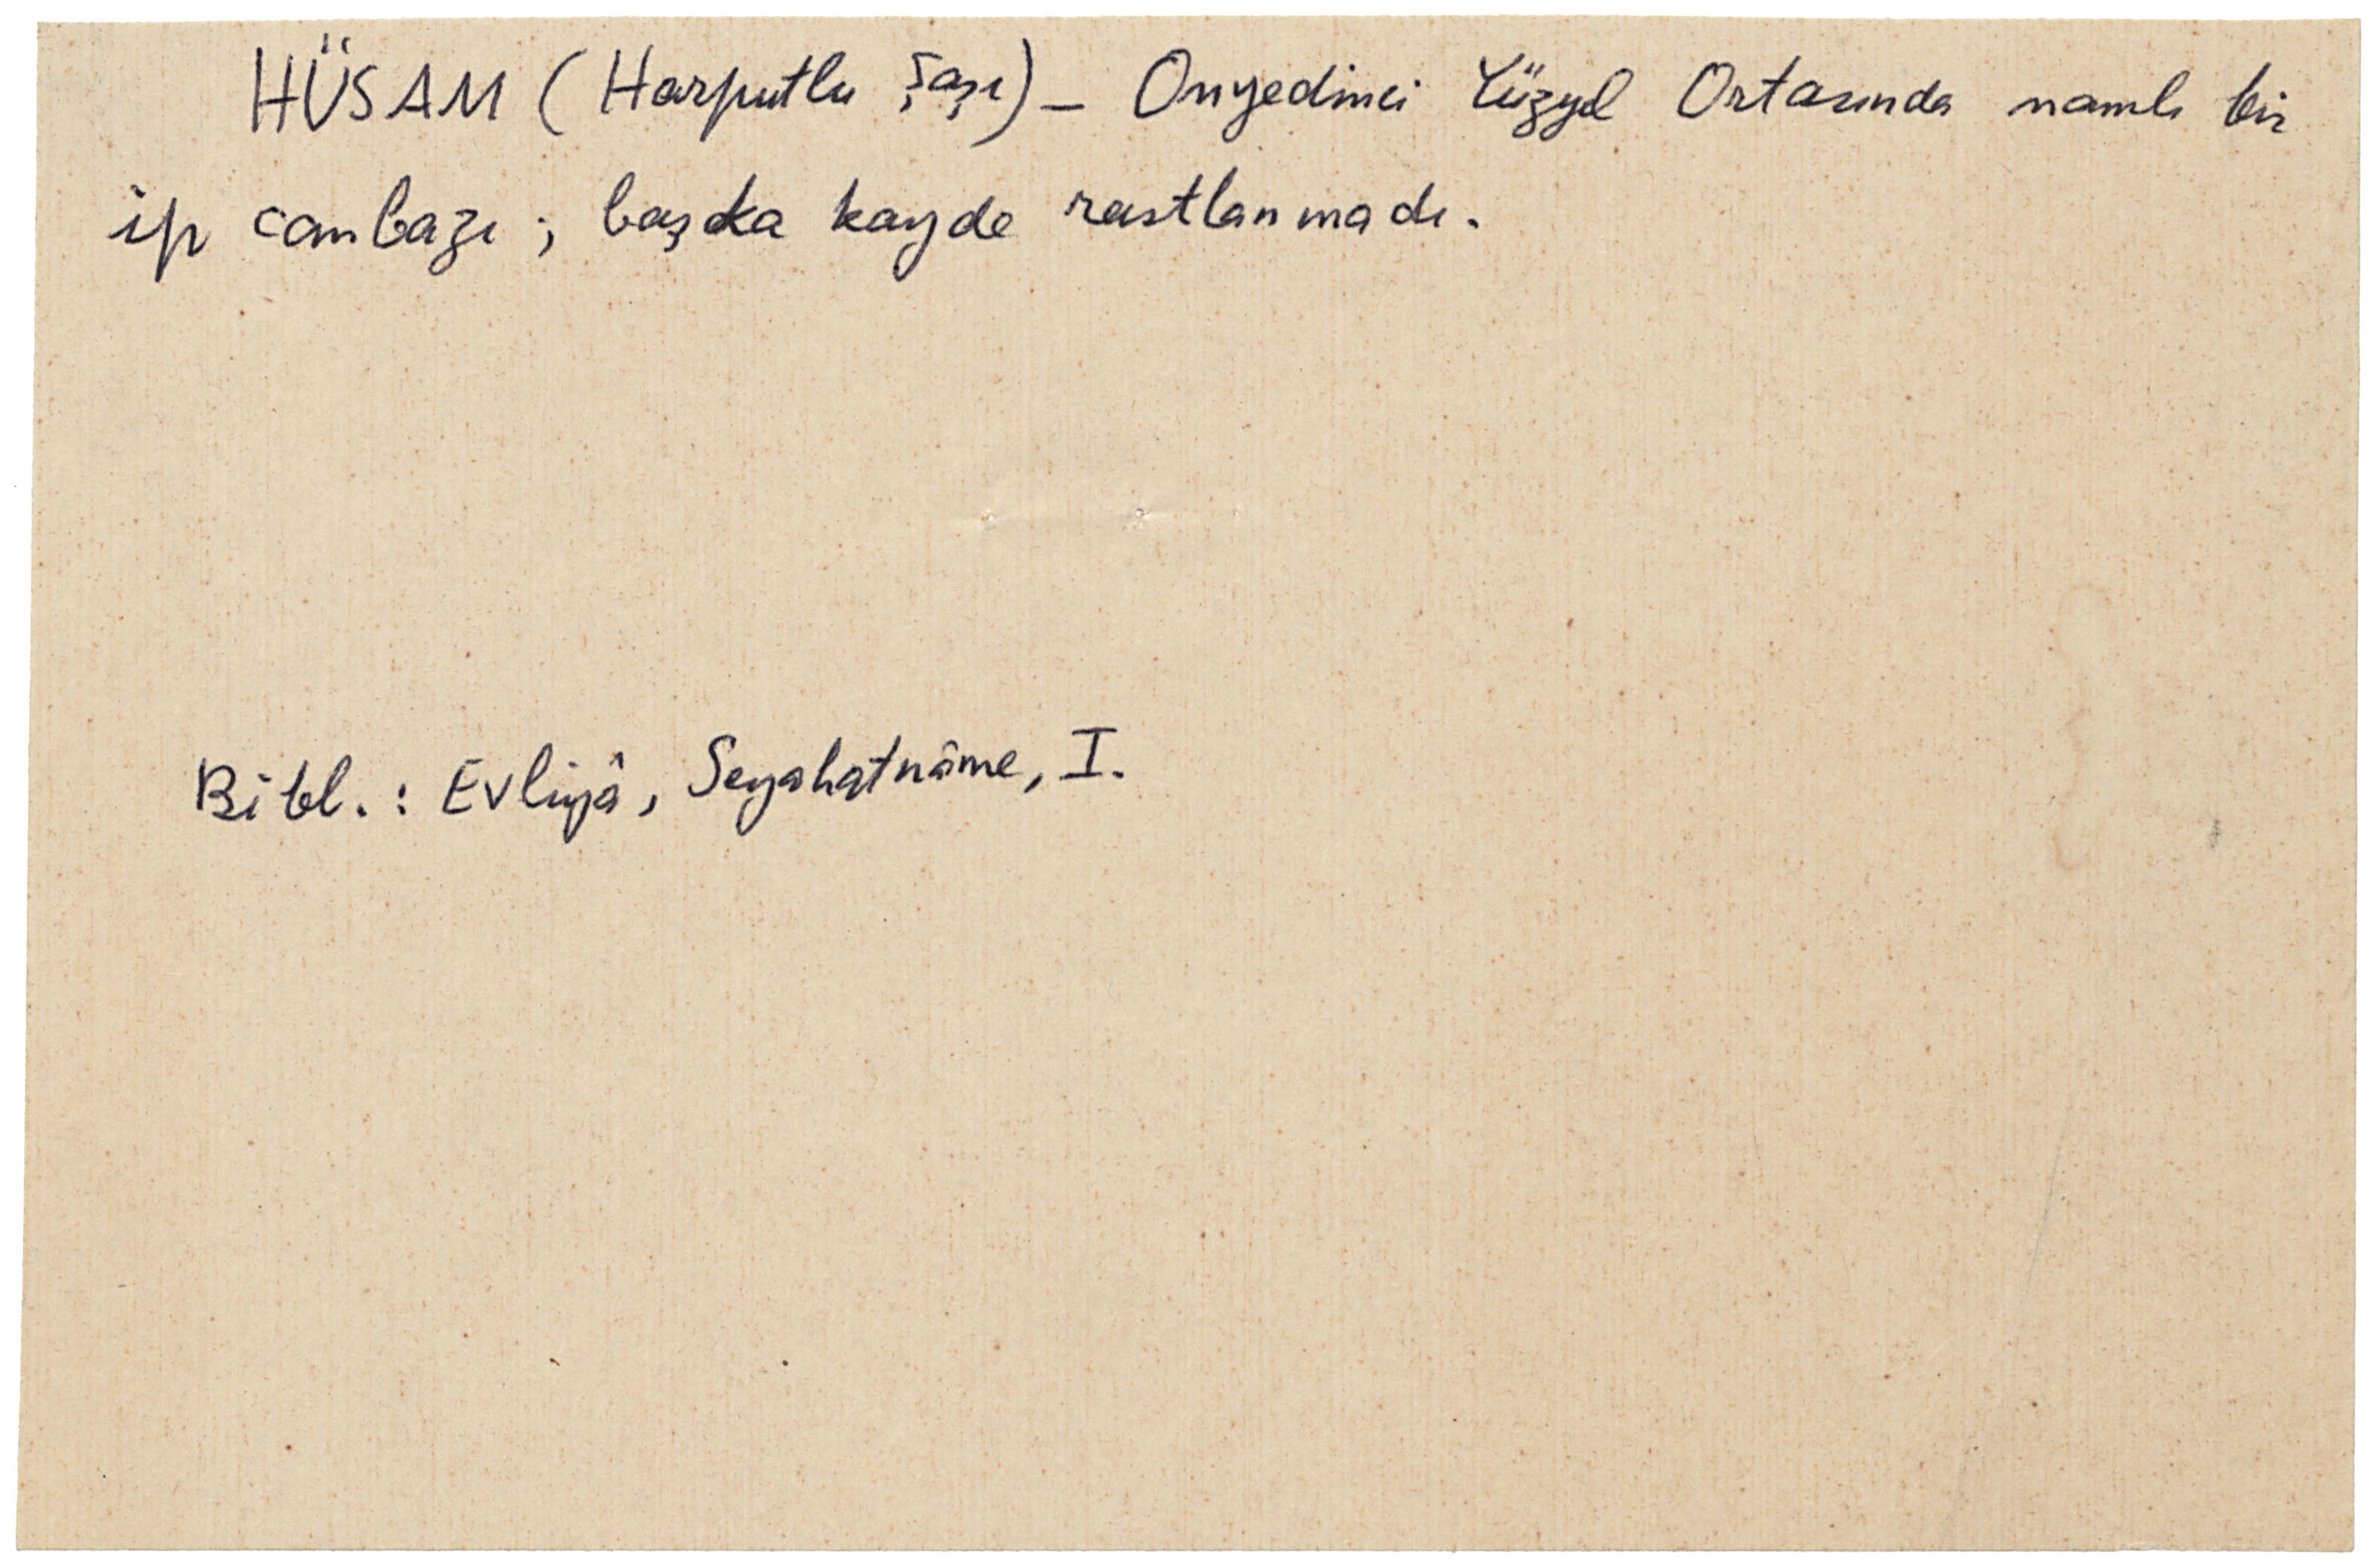 HÜSAM (Harputlu Şaşı) – Onyedinci Yüzyıl Ortasında namlı bir
ip canbazı ; başka kayde rastlanmadı.
Bibl. : Evliyâ, Seyahatnâme, I.